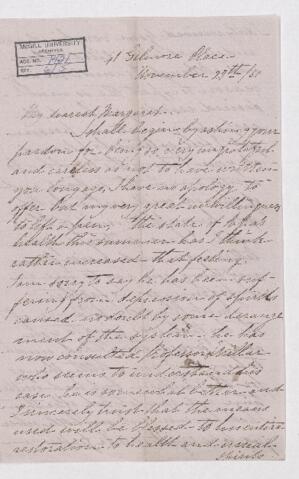 McGILL UNIVERSITY
ARCHIVES
ACC. NO.
REF.
41 Gilmore Place
November 29th /50
My dearest Margaret
I shall begin by asking your
pardon for being so very neglectful
and careless as not to have written
you long ago, I have no apology to
offer but my very great unwillingness
to lift a pen, the state of
health this summer has I think
rather increased this feeling.
I am sorry to say he has been suf-
fering from depression of spirits
caused no doubt by some derange
ment of the system he has
now consulted Professor Millar
who seems to understand his
case, he is somewhat better and
I sincerely trust that the means
used will be blessed to
restoration to health and usual
spirits